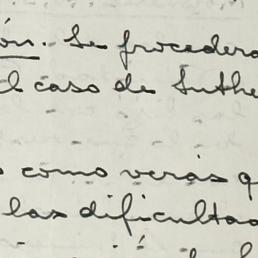 ón. Se procedera
l caso de Suthe
s como verás q
las dificultad